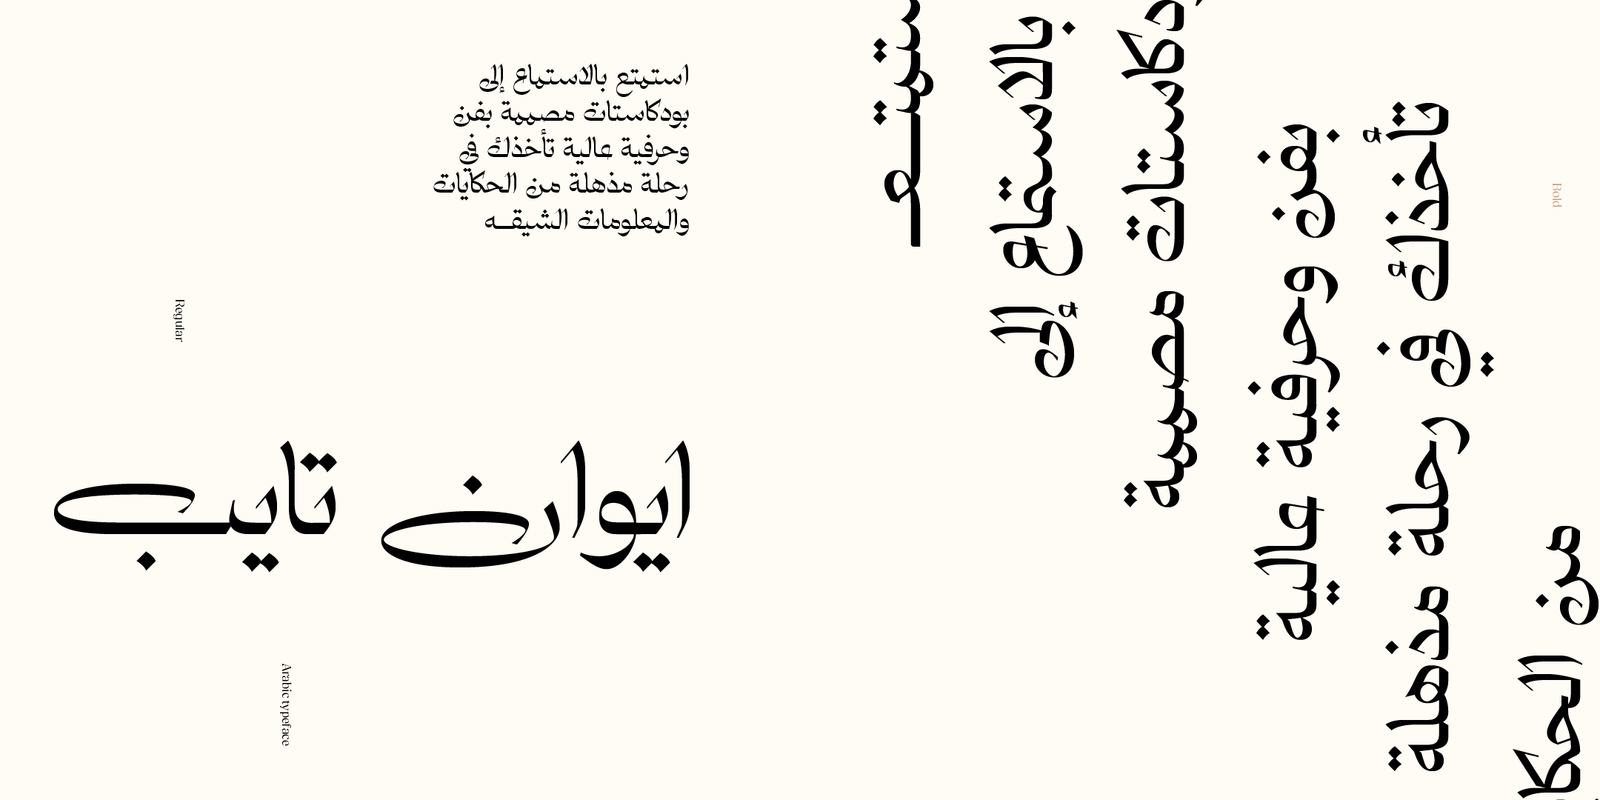 استمتع بالاستماع إلى
بودكاستات مصممة بفن
وحرفية عالية تأخذك في
رحلة مذهلة من الحكايات
والمعلومات الشيقــه
Regular
ايوان تايب
Arabic typeface
بالاستماع إلى
مصممة
بفن وحرفية عالية
تأخذك في رحلة مذهلة
من
Bold